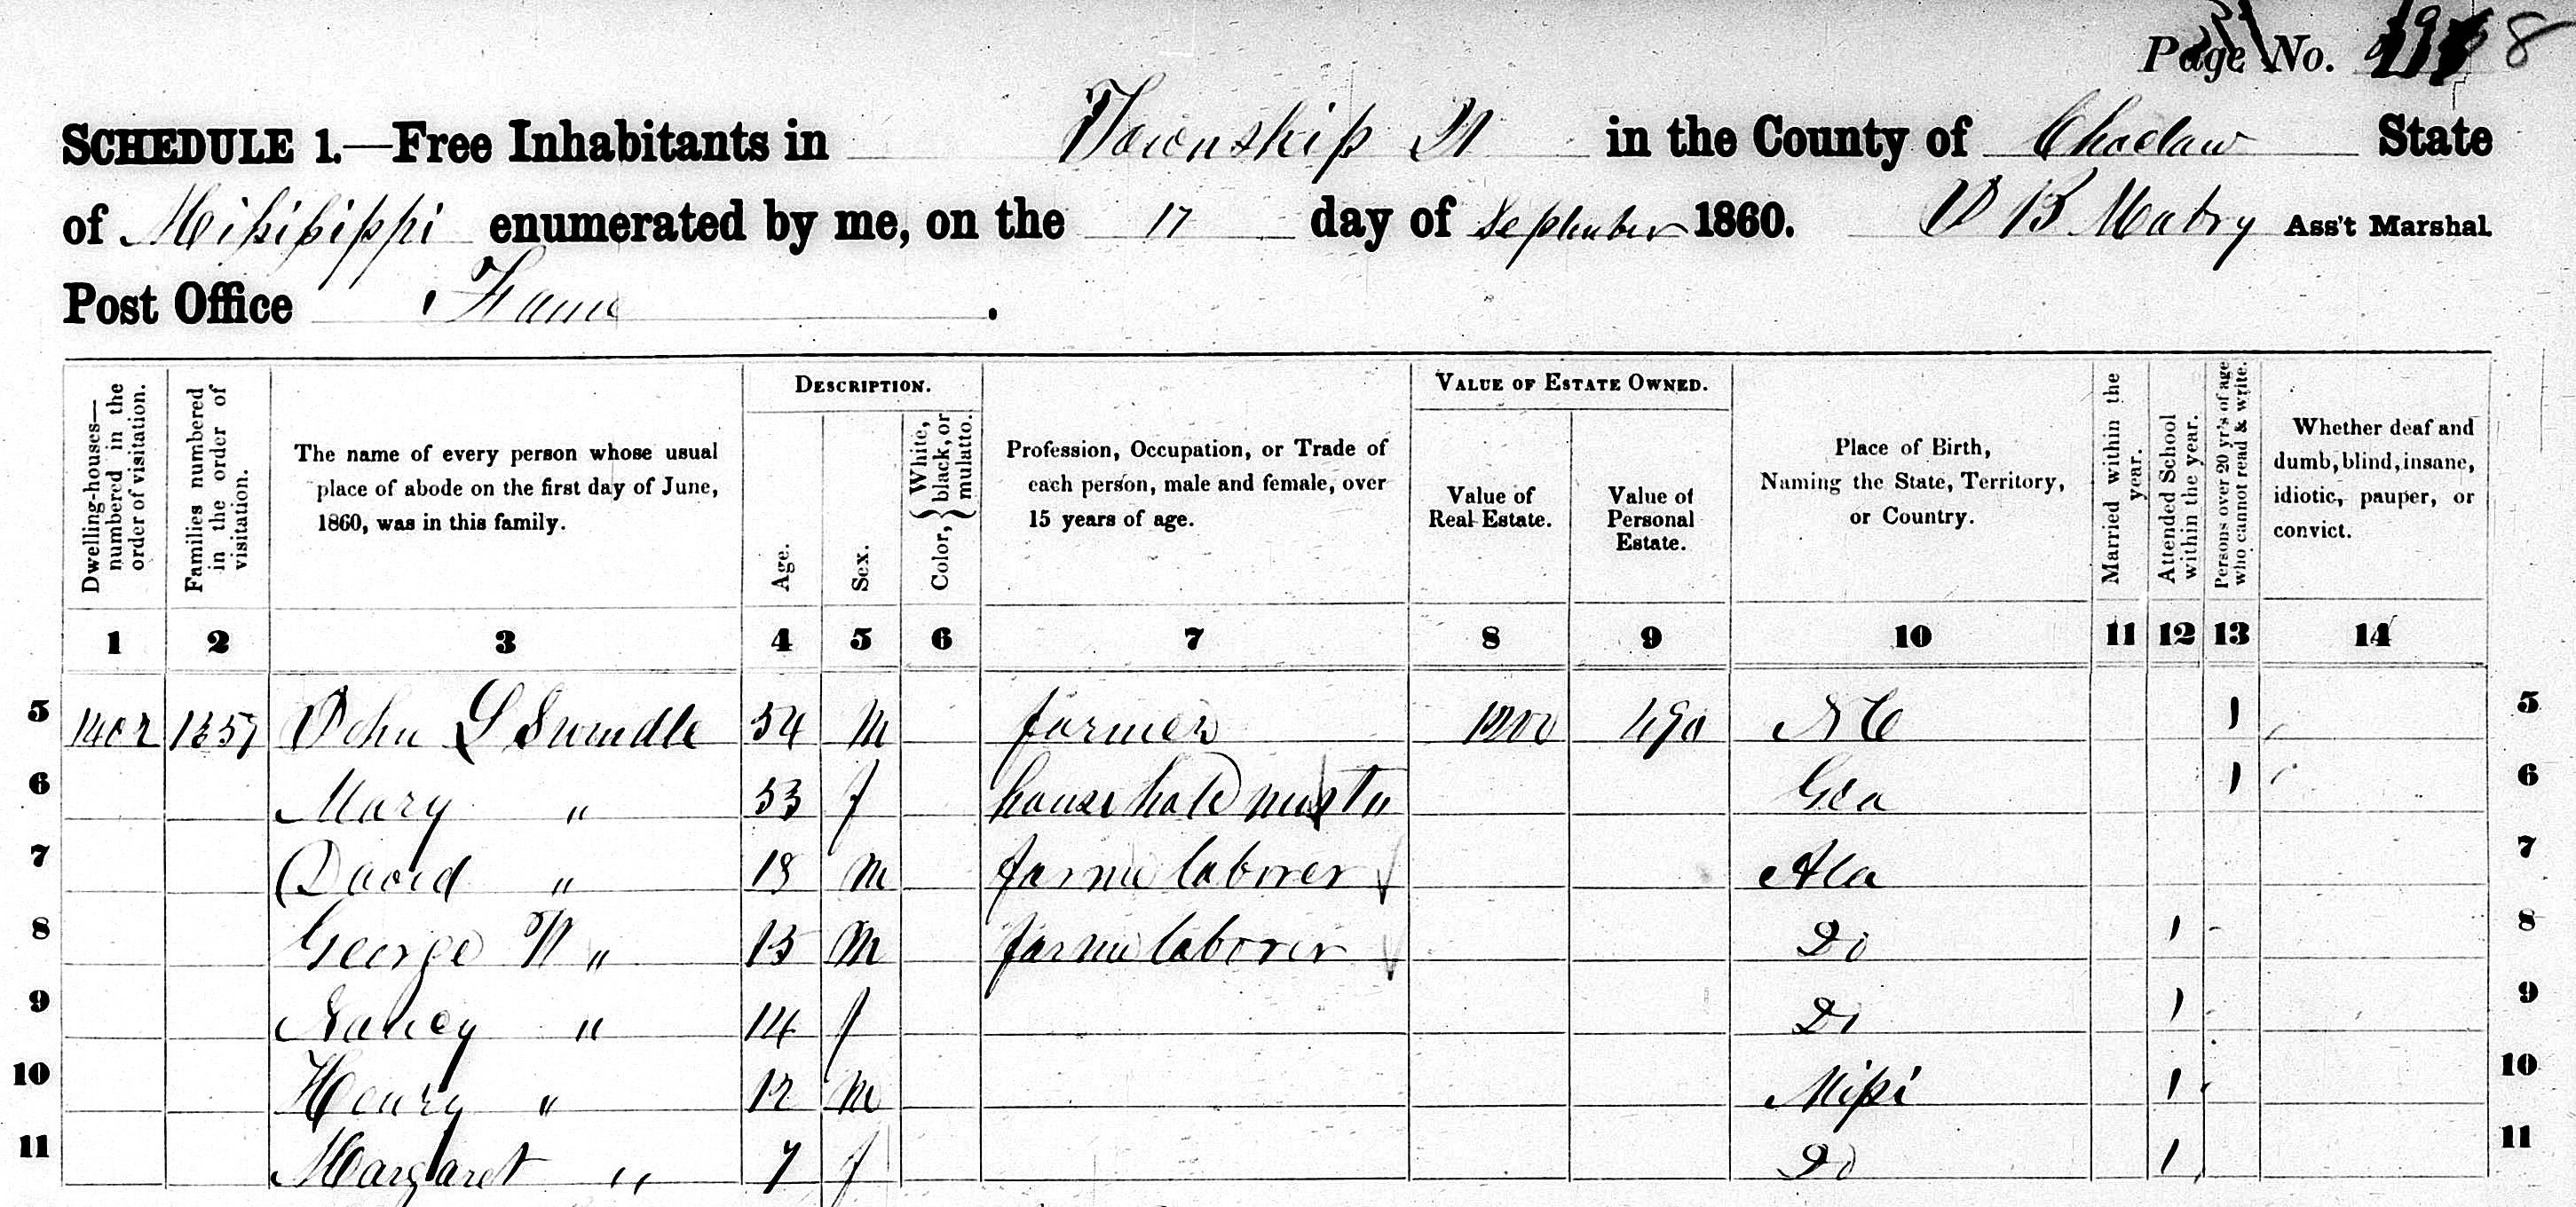 Page No. 8
SCHEDULE 1.—Free Inhabitants in Township 21 in the County of Choctaw State
of Missisippi enumerated by me, on the 17 day of September 1860. Ass't Marshal.
Post Office Fame .
Dwelling-houses—numbered in the order of visitation.
Families numbered in the order of visitation.
The name of every person whose usual
place of abode on the first day of June,
1860, was in this family.
DESCRIPTION.
Age.
Sex.
Color, { White, black, or mulatto. }
Profession, Occupation, or Trade of
each person, male and female, over
15 years of age.
VALUE OF ESTATE OWNED.
Value of
Real Estate.
Value of
Personal
Estate.
Place of Birth,
Naming the State, Territory,
or Country.
Married within the year.
Attended School within the year.
Persons over 20 yr's of age who cannot read & write.
Whether deaf and
dumb, blind, insane,
idiotic, pauper, or
convict.
1 2 3 4 5 6 7 8 9 10 11 12 13 14
5 1402 1357 John L Swindle 54 M farmer 1200 490 NC 1 5
6 Mary " 53 f household Gea 1 6
7 David " 18 M farm laborer Ala 7
8 George W " 15 M farm laborer Do 1 8
9 Nancy " 14 f Do 1 9
10 Henry " 12 M Missi 1 10
11 Margaret " 7 f Do 1 11